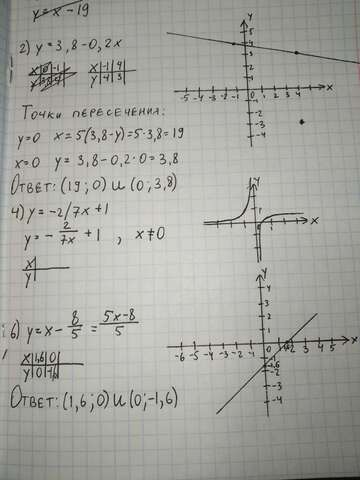 y = x - 19
2) y = 3,8 - 0,2x
x | -1 | 4
y | 4 | 3
Точки пересечения:
y=0 x = 5(3,8-y) = 5·3,8 = 19
x=0 y = 3,8 - 0,2·0 = 3,8
Ответ: (19;0) и (0;3,8)
4) y = -2/7x + 1
y = - 2/7x + 1 , x ≠ 0
x
y
6) y = x - 8/5 = 5x-8/5
x | 1,6 | 0
y | 0 | -1,6
Ответ: (1,6;0) и (0;-1,6)
y
5
4
3
2
1
-5 -4 -3 -2 -1 1 2 3 4 x
-1
-2
-3
-4
y
4
3
2
1
-6 -5 -4 -3 -2 -1 1 2 3 4 5 x
-1
-1,6
-2
-3
-4